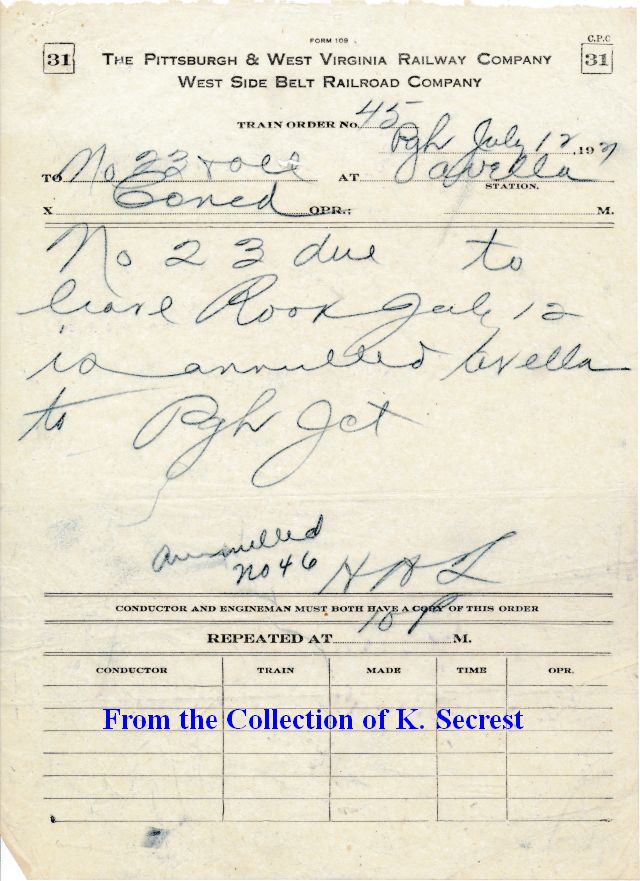 FORM 109
C.P.C
31 THE PITTSBURGH & WEST VIRGINIA RAILWAY COMPANY 31
WEST SIDE BELT RAILROAD COMPANY
TRAIN ORDER No. 45
Pgh July 12, 193
TO No 23 AT Avella
STATION.
X OPR.; M.
No 23 due to
leave Rook July 12
is annulled Avella
to Pgh Jct
Annulled
No 46 HAL
CONDUCTOR AND ENGINEMAN MUST BOTH HAVE A COPY OF THIS ORDER
REPEATED AT 10 P M.
CONDUCTOR TRAIN MADE TIME OPR.
From the Collection of K. Secrest